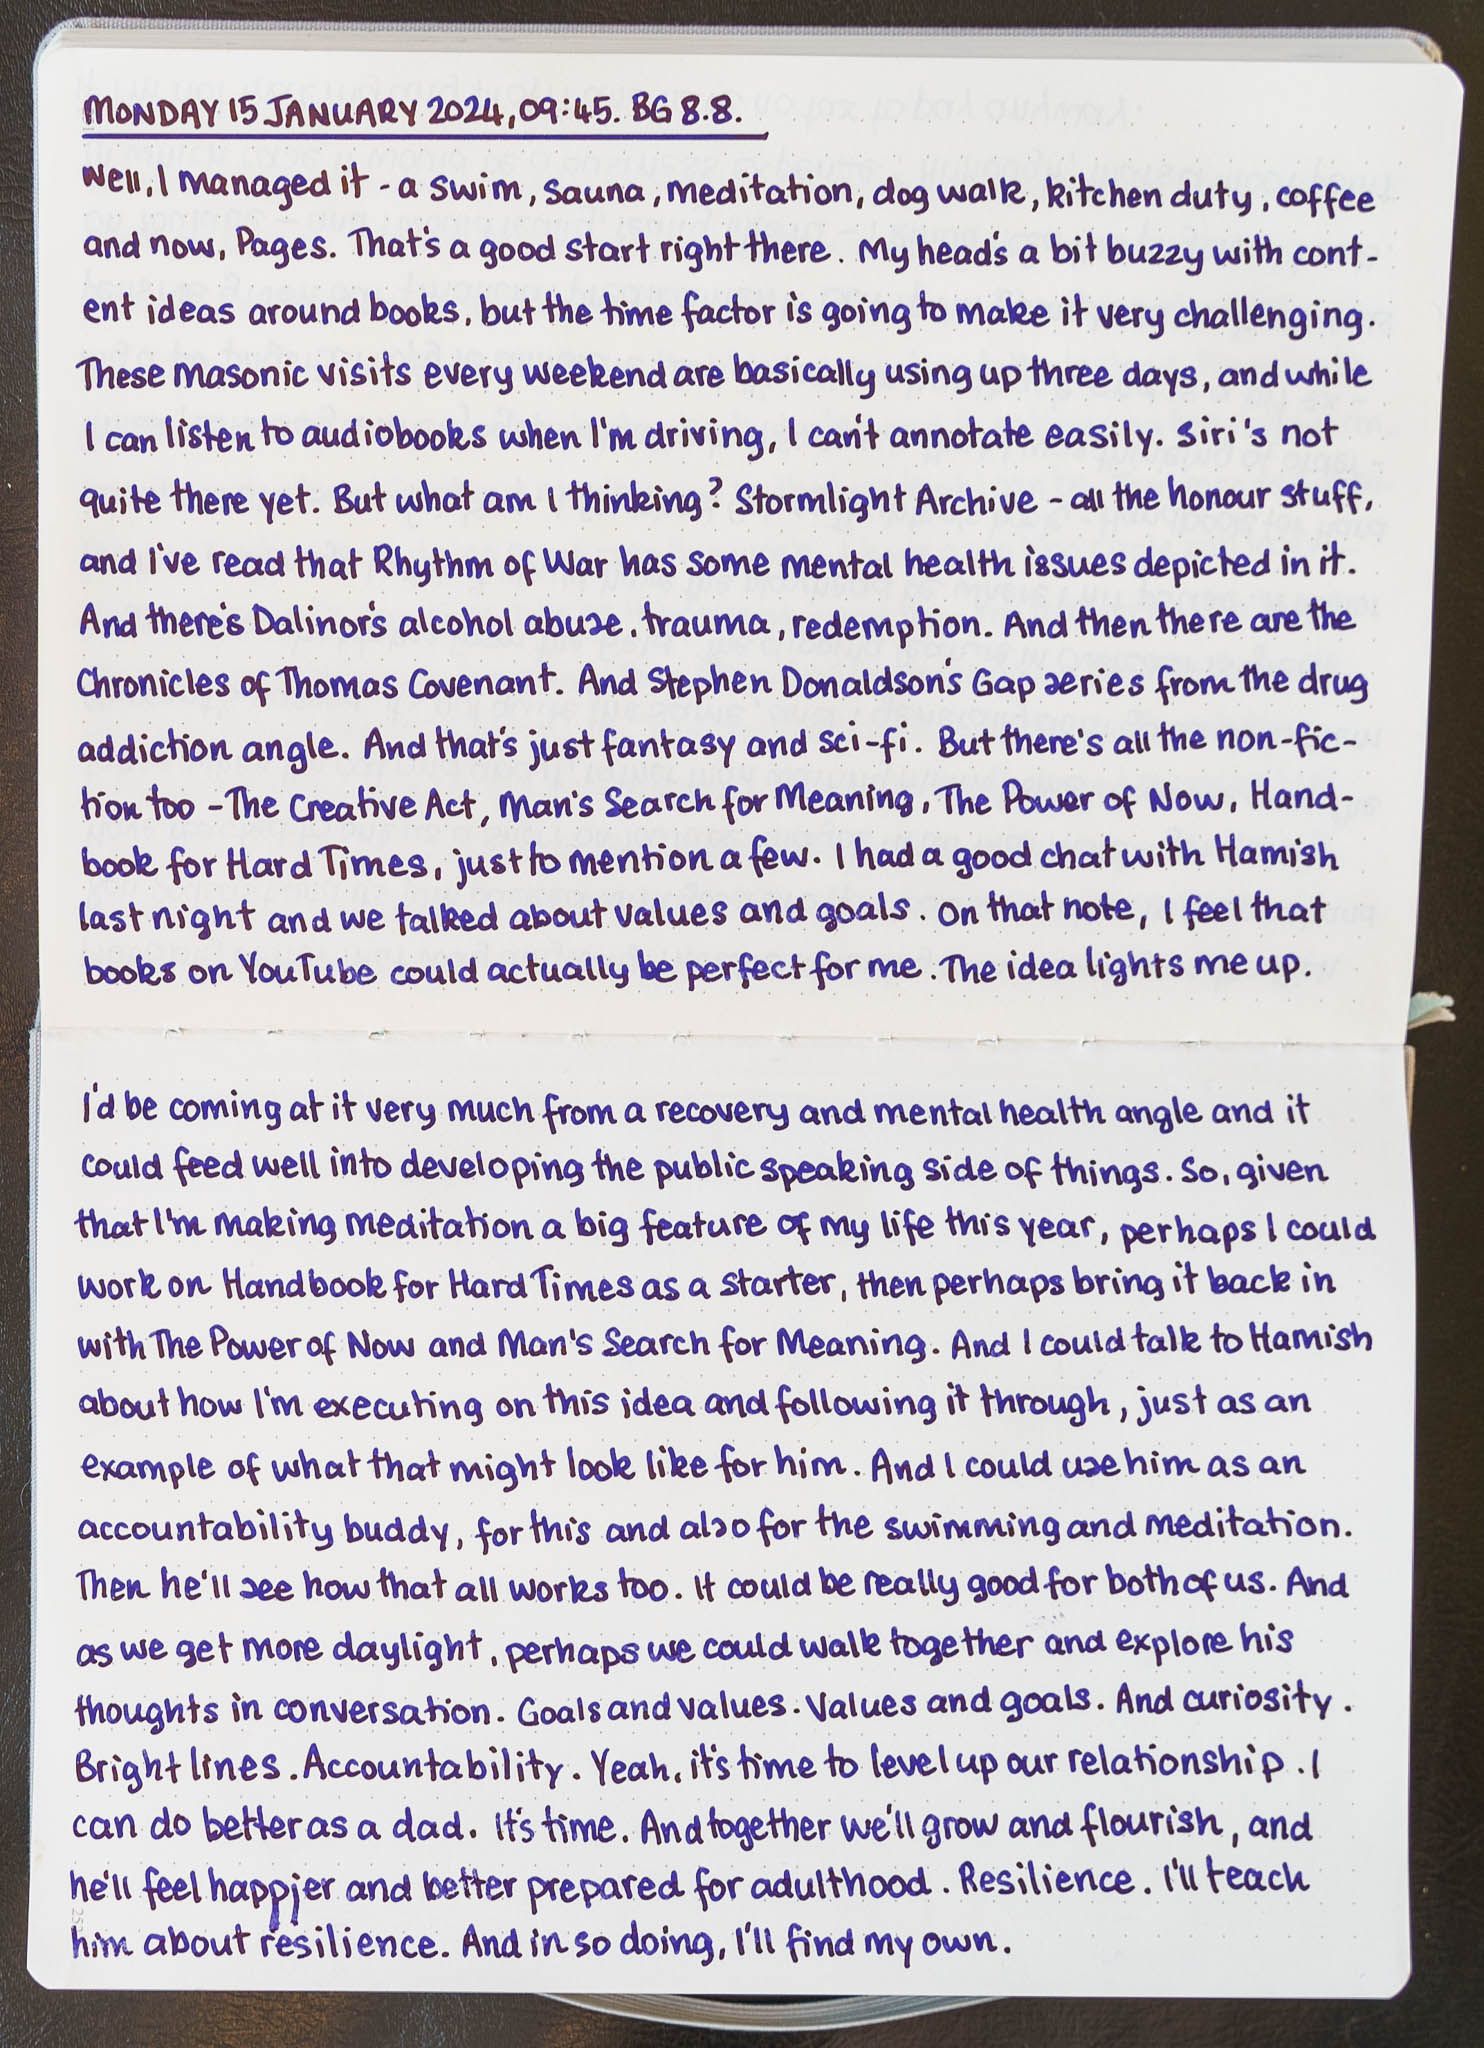 MONDAY 15 JANUARY 2024, 09:45. BG 8.8.
Well, I managed it - a swim, sauna, meditation, dog walk, kitchen duty, coffee
and now, Pages. That's a good start right there. My head's a bit buzzy with cont-
ent ideas around books, but the time factor is going to make it very challenging.
These masonic visits every weekend are basically using up three days, and while
I can listen to audiobooks when I'm driving, I can't annotate easily. Siri's not
quite there yet. But what am I thinking? Stormlight Archive - all the honour stuff,
and I've read that Rhythm of War has some mental health issues depicted in it.
And there's Dalinor's alcohol abuse, trauma, redemption. And then there are the
Chronicles of Thomas Covenant. And Stephen Donaldson's Gap series from the drug
addiction angle. And that's just fantasy and sci-fi. But there's all the non-fic-
tion too - The Creative Act, Man's Search for Meaning, The Power of Now, Hand-
book for Hard Times, just to mention a few. I had a good chat with Hamish
last night and we talked about values and goals. On that note, I feel that
books on YouTube could actually be perfect for me. The idea lights me up.
I'd be coming at it very much from a recovery and mental health angle and it
could feed well into developing the public speaking side of things. So, given
that I'm making meditation a big feature of my life this year, perhaps I could
work on Handbook for Hard Times as a starter, then perhaps bring it back in
with The Power of Now and Man's Search for Meaning. And I could talk to Hamish
about how I'm executing on this idea and following it through, just as an
example of what that might look like for him. And I could use him as an
accountability buddy, for this and also for the swimming and meditation.
Then he'll see how that all works too. It could be really good for both of us. And
as we get more daylight, perhaps we could walk together and explore his
thoughts in conversation. Goals and values. Values and goals. And curiosity.
Bright lines. Accountability. Yeah, it's time to level up our relationship. I
can do better as a dad. It's time. And together we'll grow and flourish, and
he'll feel happier and better prepared for adulthood. Resilience. I'll teach
him about resilience. And in so doing, I'll find my own.